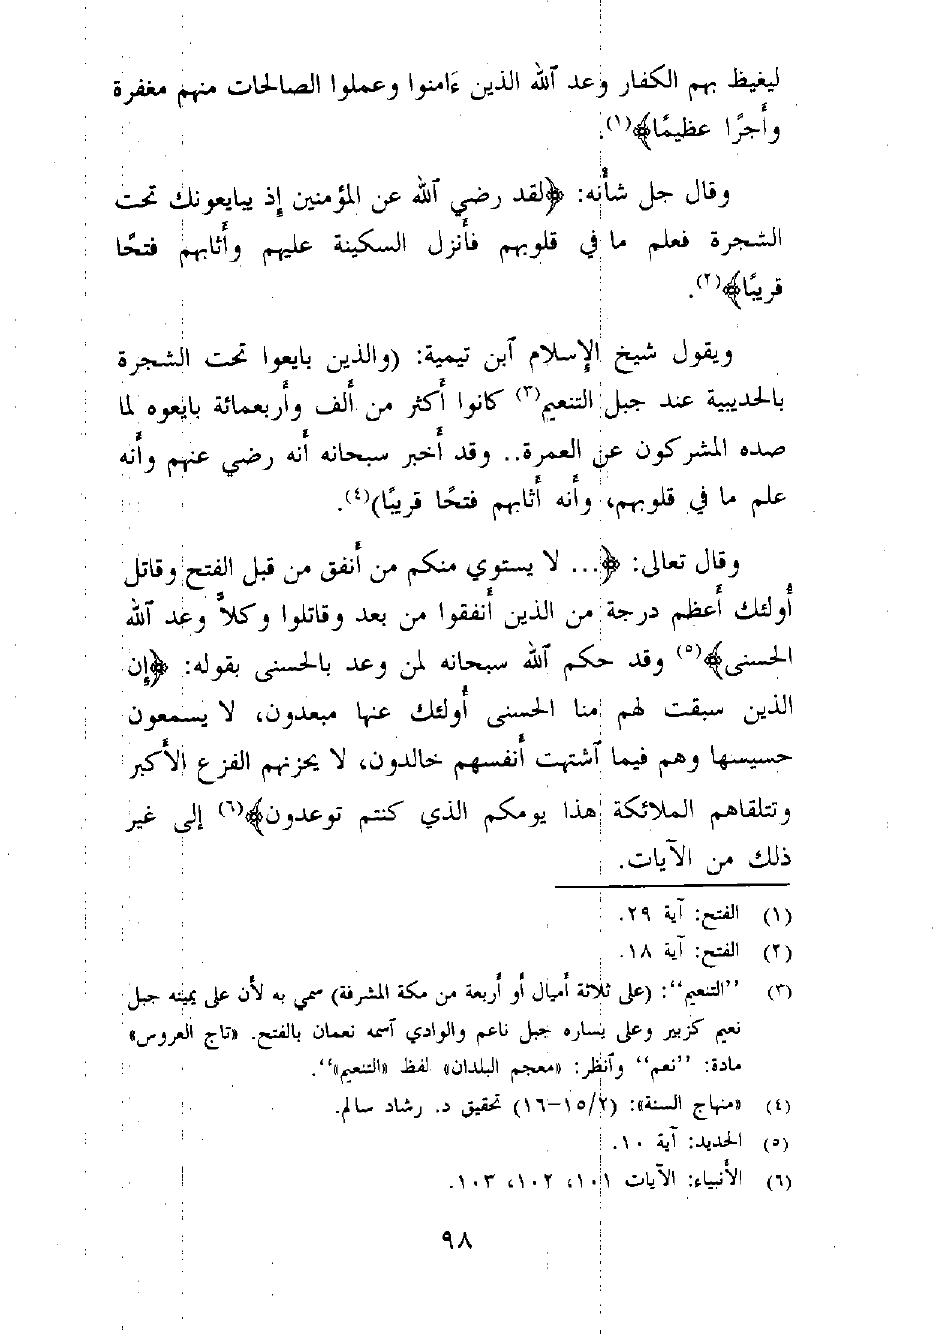 ليغيظ بهم الكفار وعد ٱلله الذين ءَامنوا وعملوا الصالحات منهم مغفرة
وأَجرًا عظيمًا﴾(١).
وقال جل شأنه: ﴿لقد رضي ٱلله عن المؤمنين إِذ يبايعونك تحت
الشجرة فعلم ما في قلوبهم فأَنزل السكينة عليهم وأَثابهم فتحًا
قريبًا﴾(٢).
ويقول شيخ الإِسلام ٱبن تيمية: (والذين بايعوا تحت الشجرة
بالحديبية عند جبل التنعيم(٣) كانوا أَكثر من أَلف وأَربعمائة بايعوه لما
صده المشركون عن العمرة.. وقد أَخبر سبحانه أَنه رضي عنهم وأَنه
علم ما في قلوبهم، وأَنه أَثابهم فتحًا قريبًا)(٤).
وقال تعالى: ﴿... لا يستوي منكم من أَنفق من قبل الفتح وقاتل
أُولئك أَعظم درجة من الذين أَنفقوا من بعد وقاتلوا وكلاًّ وعد ٱلله
الحسنى﴾(٥) وقد حكم ٱلله سبحانه لمن وعد بالحسنى بقوله: ﴿إِن
الذين سبقت لهم منا الحسنى أُولئك عنها مبعدون، لا يسمعون
حسيسها وهم فيما ٱشتهت أَنفسهم خالدون، لا يحزنهم الفزع الأَكبر
وتتلقاهم الملائكة هذا يومكم الذي كنتم توعدون﴾(٦) إِلى غير
ذلك من الآيات.
(١) الفتح: آية ٢٩.
(٢) الفتح: آية ١٨.
(٣) ’’التنعيم‘‘: (على ثلاثة أَميال أَو أَربعة من مكة المشرفة) سمي به لأَن على يمينه جبل
نعيم كزبير وعلى يساره جبل ناعم والوادي ٱسمه نعمان بالفتح. «تاج العروس»
مادة: ’’نعم‘‘ وٱنظر: «معجم البلدان» لفظ «التنعيم»‘‘.
(٤) «منهاج السنة»: (١٥/٢-١٦) تحقيق د. رشاد سالم.
(٥) الحديد: آية ١٠.
(٦) الأَنبياء: الآيات ١٠١، ١٠٢، ١٠٣.
٩٨